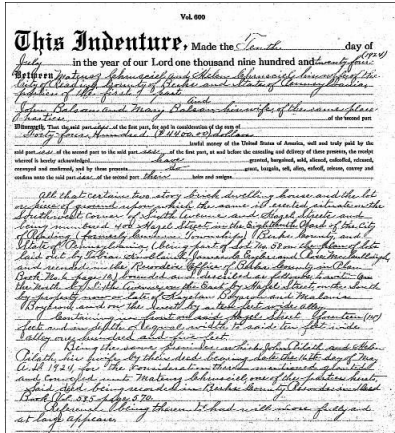 Vol. 609
This Indenture, Made the Tenth day of
July in the year of our Lord one thousand nine hundred and twenty four (1924)
Between Mateusz Chmusciel and Helen Chmusciel his wife of the
City of Reading County of Berks and State of Pennsylvania
parties of the first part
And
John Balsan and Mary Balsan his wife of the same place
parties of the second part
Witnesseth, That the said part ies of the first part, for and in consideration of the sum of
Forty four Hundred ($4400.00) dollars
lawful money of the United States of America, well and truly paid by the
said part ies of the second part to the said part ies of the first part, at and before the ensealing and delivery of these presents, the receipt
whereof is hereby acknowledged have granted, bargained, sold, aliened, enfeoffed, released,
conveyed and confirmed, and by these presents do grant, bargain, sell, alien, enfeoff, release, convey and
confirm unto the said part ies of the second part their heirs and assigns.
All that certain two story brick dwelling house and the lot
or piece of ground upon which the same is erected situate on the
Southwest corner of South Avenue and Hazel Streets and
being numbered 400 Hazel Street in the Eighteenth Ward of the City
of Reading (formerly Township) Berks County and
State of Pennsylvania (being part of Lot No. 52 on the plan of lots
laid out by Tobias
and recorded in the Recorder's Office of Berks County in Plan
Book No. page bounded and described as follows to wit: On
the North by South Avenue on the East by Hazel Street on the South
by property now or late of Boyerson and Melanie
Boyerson and on the West by a ten feet wide alley.
Containing in front on said Hazel Street fourteen
feet and in depth of equal width to said ten feet wide
alley one hundred and five feet.
Being the same premises which John Pilath and
Pilath, his wife by their deed bearing date the 16th day of May
A.D. 1921, for the consideration therein mentioned granted
and conveyed unto Mateusz Chmusciel, one of the parties hereto,
said deed being recorded in Berks County Records in Deed
Book Vol. 535 page 570.
Reference being thereunto had will more fully and
at large appear.